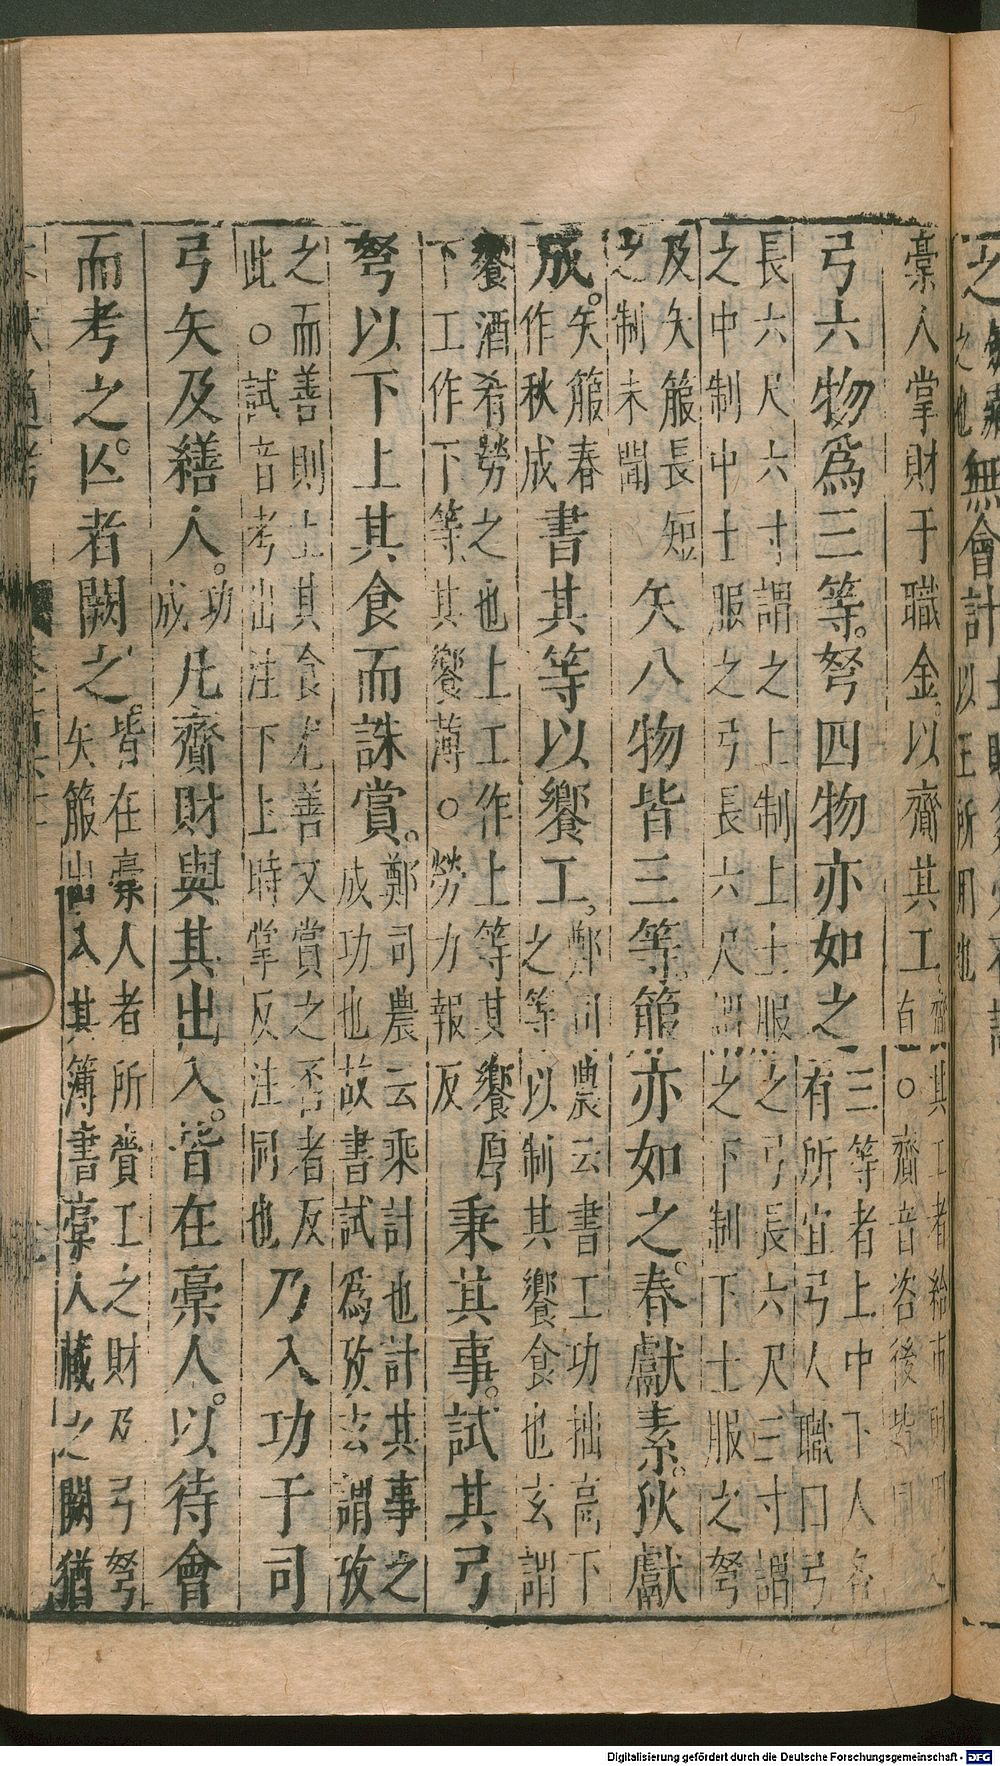 槀人掌財于職金以齎其工齎其工者給市財用之
直○齎音咨後皆同
弓六物爲三等弩四物亦如之三等者上中下人各
有所宜弓人職曰弓
長六尺六寸謂之上制上士服之弓長六尺三寸謂
之中制中士服之弓長六尺謂之下制下士服之弩
及矢箙長短
之制未聞
矢八物皆三等箙亦如之春獻素秋獻
成矢箙春
作秋成
書其等以饗工鄭司農云書工功拙高下
之等以制其饗食也玄謂
饗酒肴勞之也上工作上等其饗厚
下工作下等其饗薄○勞力報反
乘其事試其弓
弩以下上其食而誅賞鄭司農云乘計也計其事之
成功也故書試爲攷玄謂攷
之而善則上其食尤善又賞之否者反
此○試音考出注下上時掌反注同也
乃入功于司
弓矢及繕人功
成
凡齎財與其出入皆在槀人以待會
而考之亡者闕之皆在槀人者所齎工之財及弓弩
矢箙出入其簿書槀人藏之闕猶
無會計
以王所用也
Digitalisierung gefördert durch die Deutsche Forschungsgemeinschaft - DFG